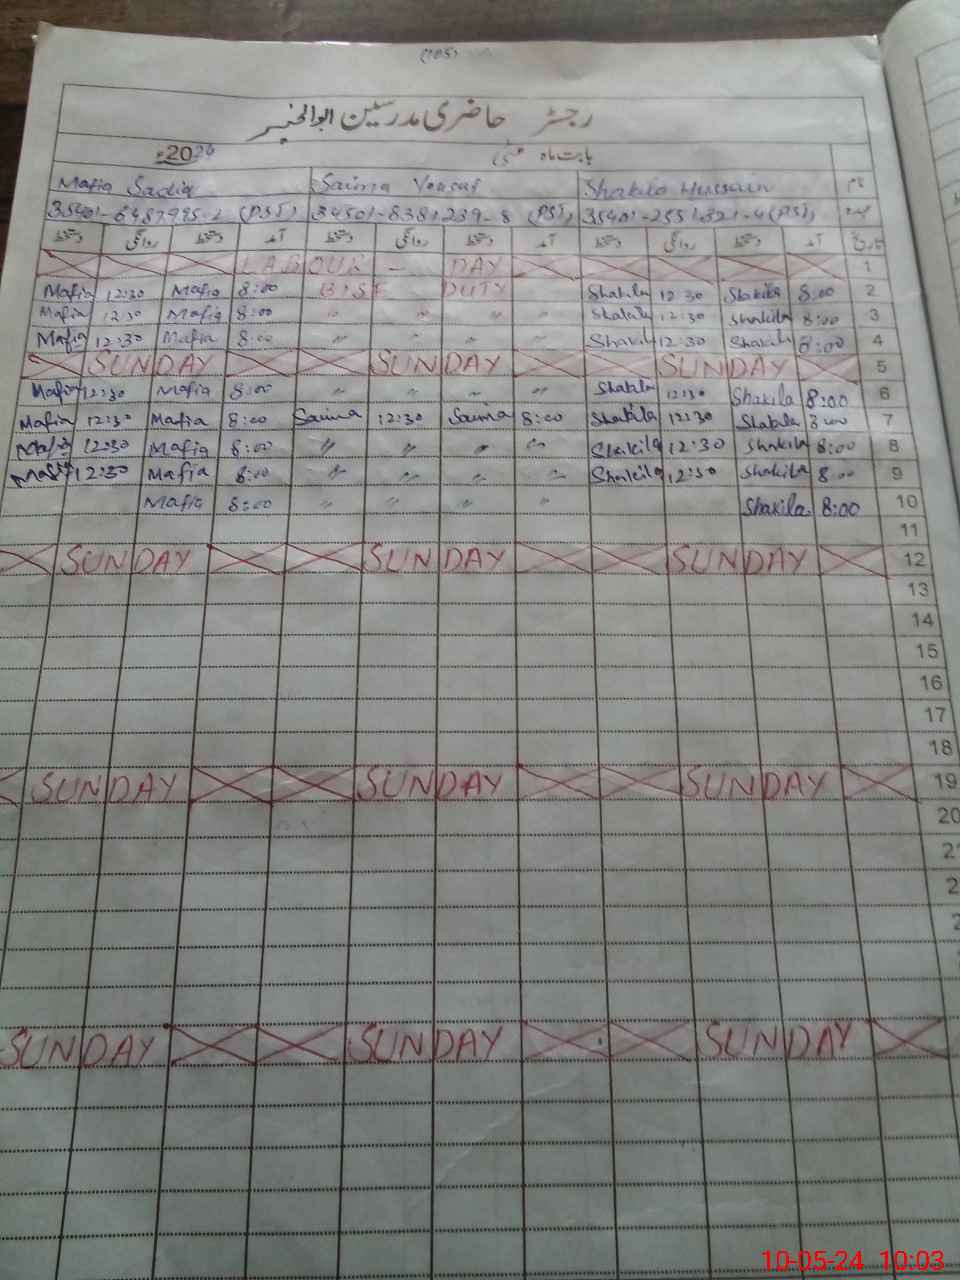 (105)
رجسٹر حاضری مدرسین ابوالخیر
بابت ماہ مئی 2024ء
نام Shakila Hussain Saima Yousaf Mafia Sadiq
عہدہ (PST)
تاریخ آمد دستخط روانگی دستخط آمد دستخط روانگی دستخط آمد دستخط روانگی دستخط
LABOUR - DAY 1
Mafia 12:30 Mafia 8:00 BISE DUTY Shakila 12:30 Shakila 8:00 2
Mafia 12:30 Mafia 8:00 " " " " Shakila 12:30 Shakila 8:00 3
Mafia 12:30 Mafia 8:00 " " " " Shakila 12:30 Shakila 8:00 4
SUNDAY SUNDAY SUNDAY 5
Mafia 12:30 Mafia 8:00 " " " " Shakila 12:30 Shakila 8:00 6
Mafia 12:30 Mafia 8:00 Saima 12:30 Saima 8:00 Shakila 12:30 Shakila 8:00 7
Mafia 12:30 Mafia 8:00 " " " " Shakila 12:30 Shakila 8:00 8
Mafia 12:30 Mafia 8:00 " " " " Shakila 12:30 Shakila 8:00 9
Mafia 8:00 " " " " Shakila 8:00 10
11
SUNDAY SUNDAY SUNDAY 12
13
14
15
16
17
18
SUNDAY SUNDAY SUNDAY 19
20
SUNDAY SUNDAY SUNDAY
10-05-24 10:03